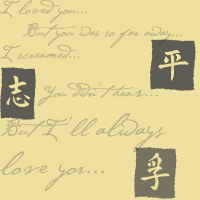 I loved you...
But you was so far away...
I screamed...
平
志
You didn't hear...
But I'll always
love you...
孚